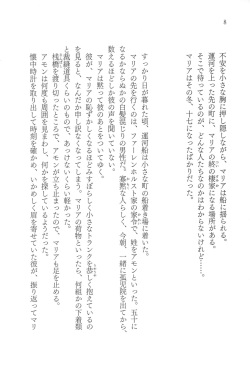 8
不安を小さな胸に押し隠しながら、マリアは船に揺られる。
運河を上った先のこの町に、マリアの終の棲家になる場所がある。
そこで待っているのが、どんな人たちなのかはわからないけれど……。
マリアはその冬、十七になったばかりだった。
すっかり日が暮れた頃、運河船は小さな町の船着き場に着いた。
マリアの先を行くのは、ファーレンホルスト家の家令で、姓をアモンといった。五十に
なるかならぬかの白髪混じりの男性だ。寡黙な人らしく、今朝、一緒に孤児院を出てから、
数えるほどしか彼の声を聞いていない。
マリアは黙って彼のあとに続いた。
彼が、マリアの恥ずかしくなるほどみすぼらしく小さなトランクを恭しく抱えている
のを見ると、なんだか申し訳なくなってしまう。マリアの荷物といったら、何組かの下着類
と裁縫道具くらいのもので、あっけないくらい軽かった。
桟橋を渡り切ったところで、アモンが立ち止まったので、マリアも足を止める。
アモンは何度も周囲を見まわし、何かを探しているようだった。
懐中時計を取り出して時刻を確かめ、いぶかしげに眉を寄せていた彼が、振り返ってマリ